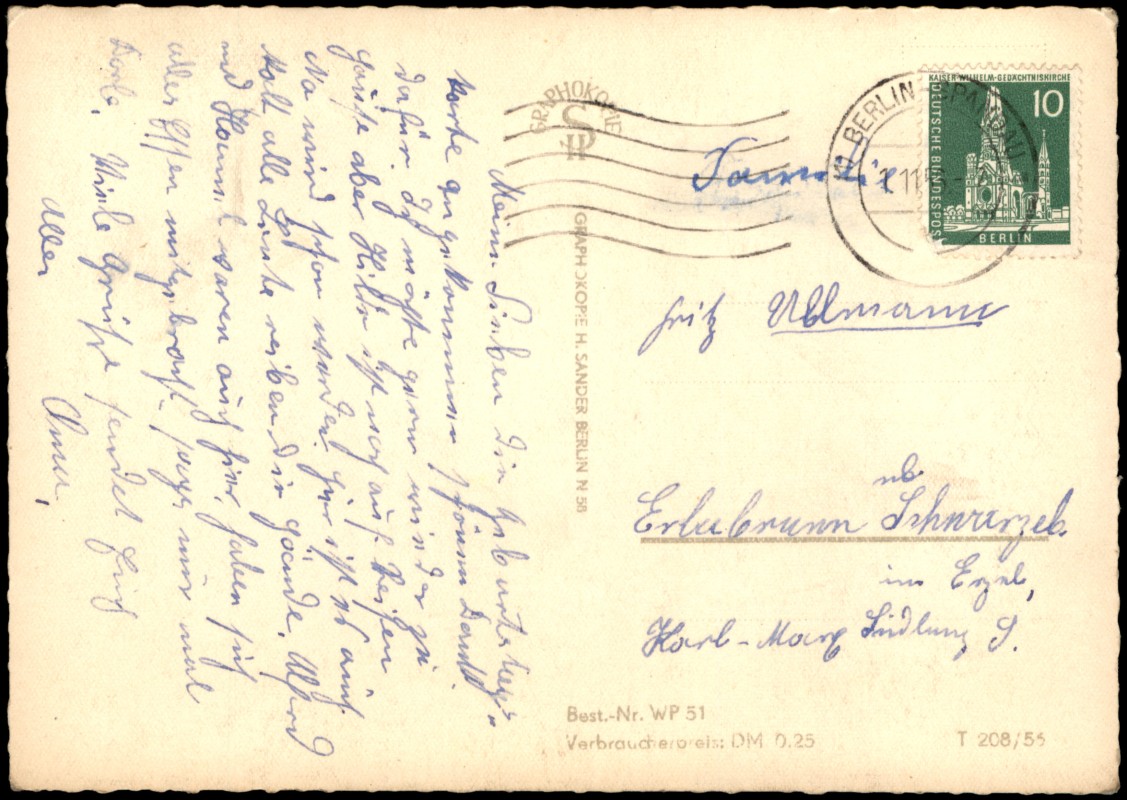 Meine Lieben die Geburtstags-
karte angekommen schönen Dank
dafür. Ich möchte gern wieder zu
Hause aber Hilde ist noch auf Reisen
Na wird schon werden hier ist es auch
kalt alle Leute reiben die Hände. Alfred
und Hanni waren auch hier haben sich
alles Essen mitgebracht
Viele Grüße sendet Euch
allen
GRAPHOKOPIE
GRAPHOKOPIE H. SANDER BERLIN N 58
BERLIN SPANDAU
KAISER-WILHELM-GEDÄCHTNISKIRCHE
DEUTSCHE BUNDESPOST
10
BERLIN
Familie
Fritz Ullmann
üb
Erlabrunn Schwarzeb.
im Erzgb.
Karl-Marx Siedlung 9.
Best.-Nr. WP 51
Verbraucherpreis: DM 0.25
T 208/56